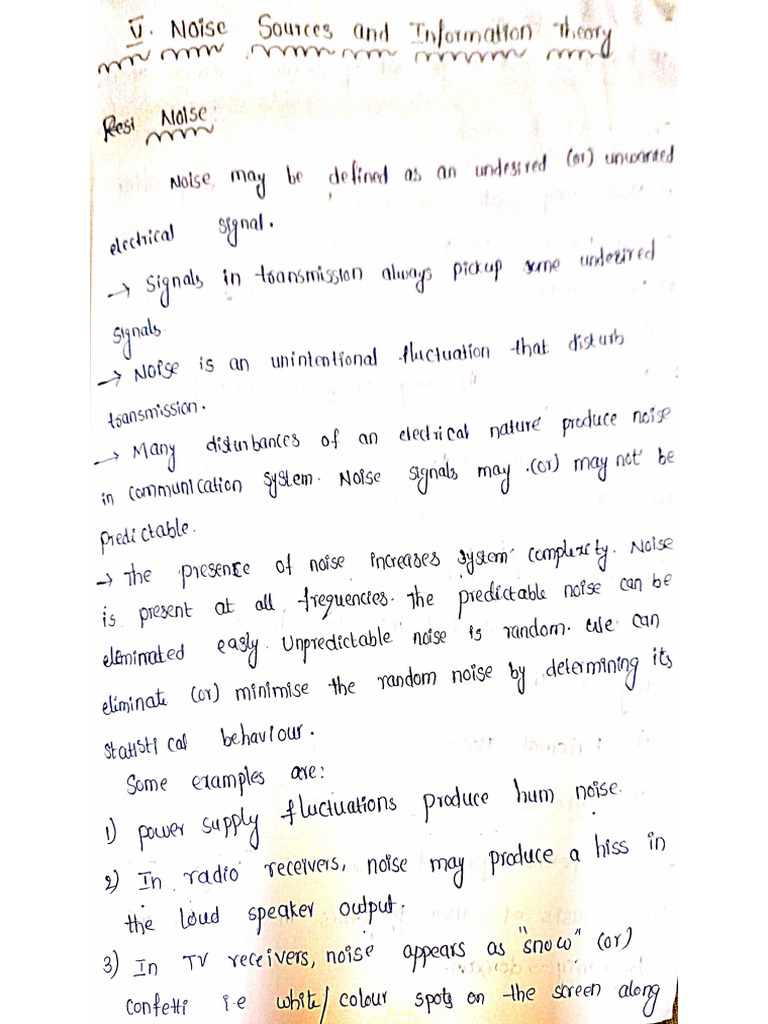 V. Noise Sources and Information Theory
Resi Noise:
Noise may be defined as an undesired (or) unwanted
electrical signal.
→ Signals in transmission always pickup some undesired
signals.
→ Noise is an unintentional fluctuation that disturb
transmission.
→ Many disturbances of an electrical nature produce noise
in communication system. Noise signals may (or) may not be
predictable.
→ The presence of noise increases system complexity. Noise
is present at all frequencies. The predictable noise can be
eliminated easly. Unpredictable noise is random. We can
eliminate (or) minimise the random noise by determining its
statistical behaviour.
Some examples are:
1) power supply fluctuations produce hum noise.
2) In radio receivers, noise may produce a hiss in
the loud speaker output.
3) In TV receivers, noise appears as "snow" (or)
confetti i.e white/colour spots on the screen along